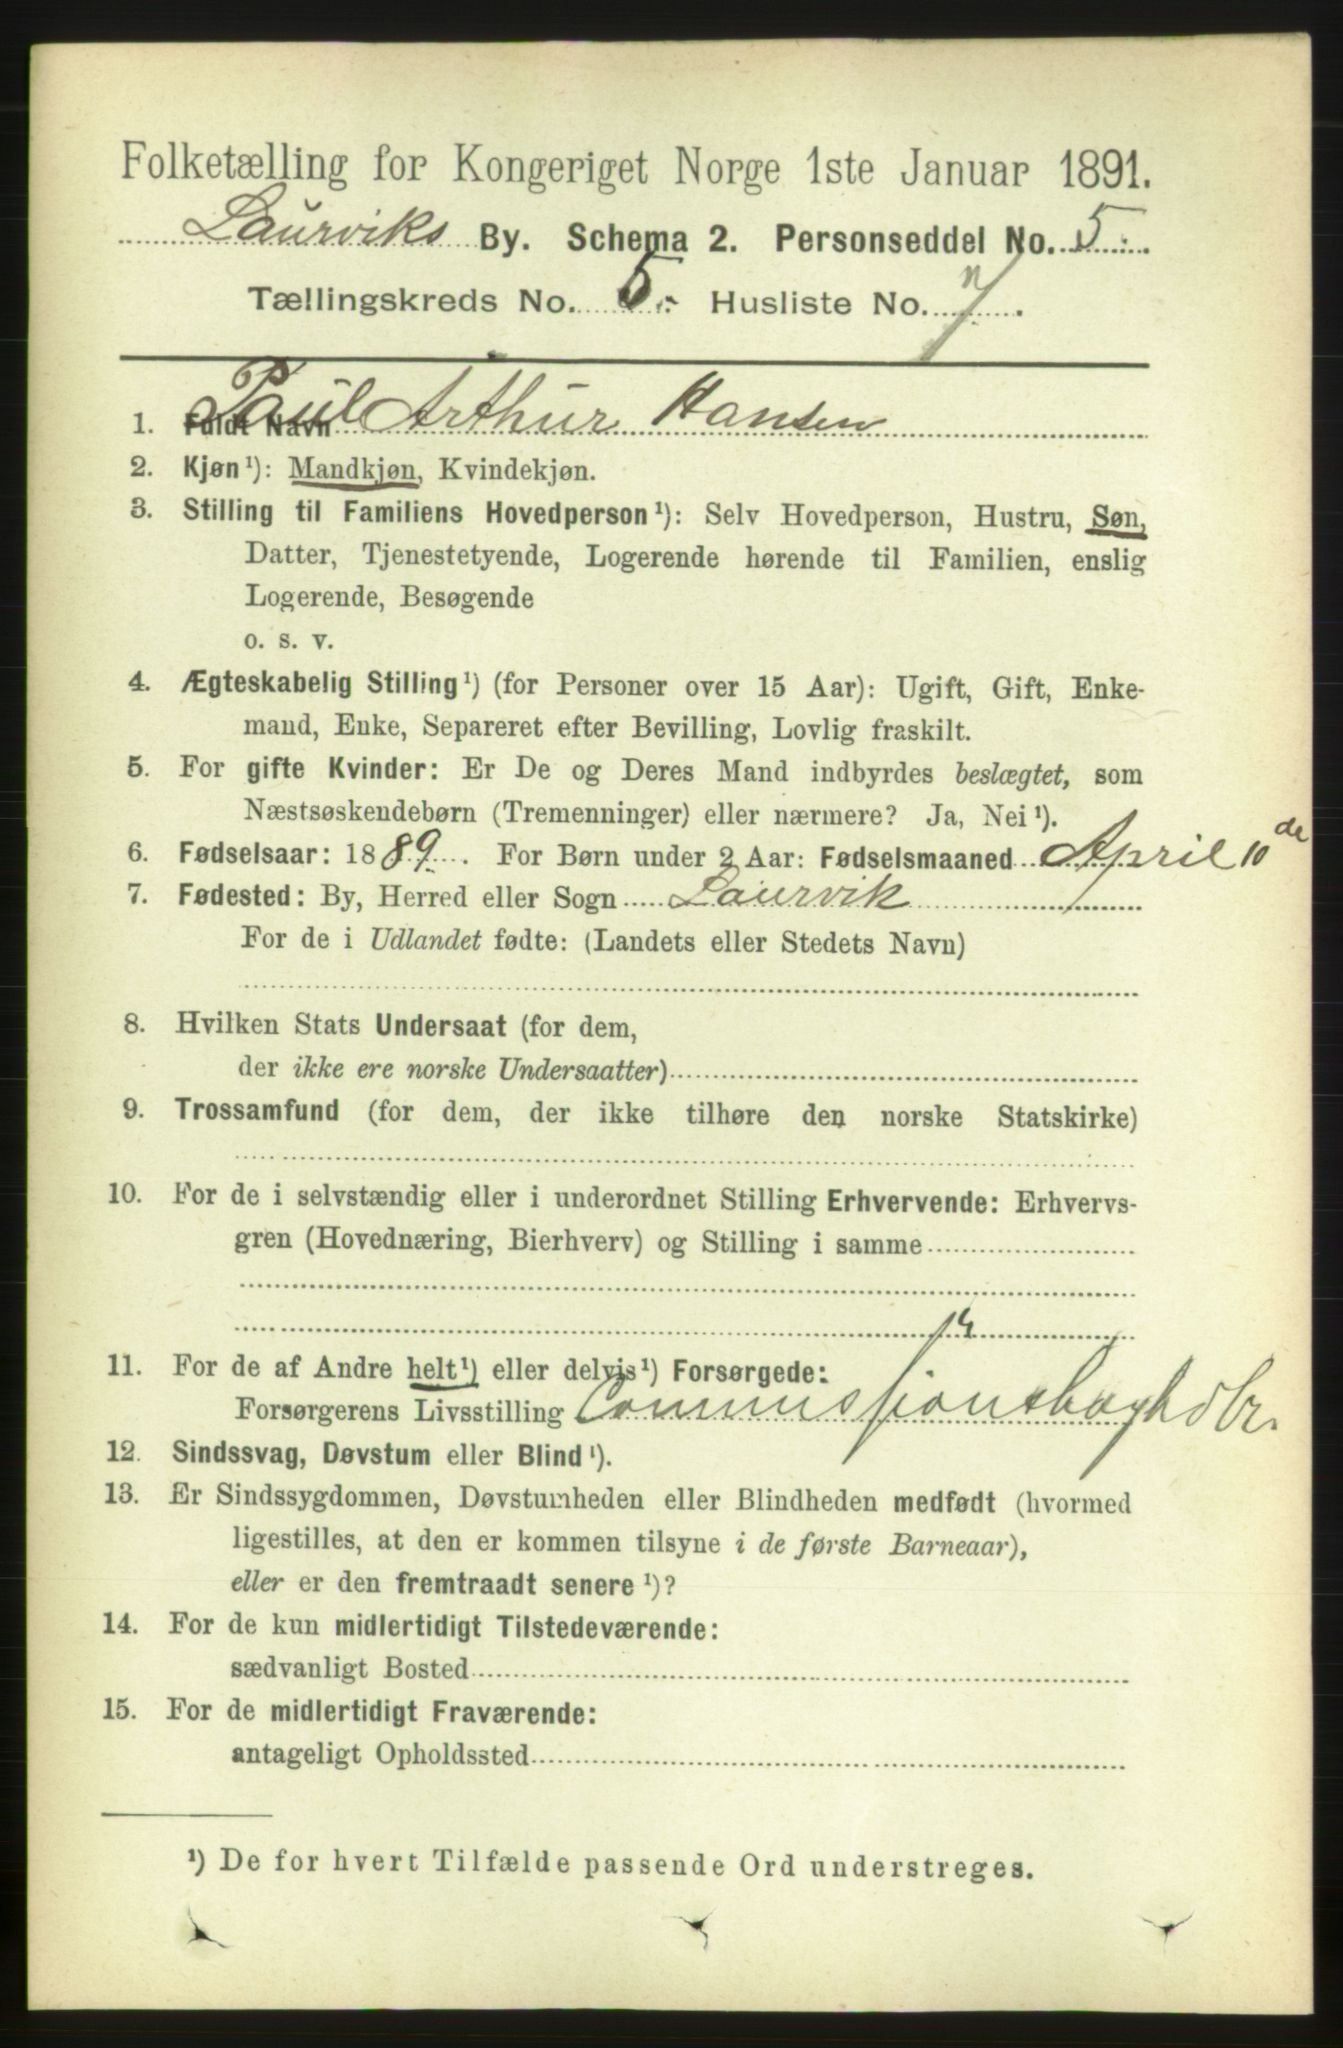 Folketælling for Kongeriget Norge 1ste Januar 1891.
Laurviks By. Schema 2. Personseddel No. 5.
Tællingskreds No. 5. Husliste No. 7.
1. Fuldt Navn Paul Arthur Hansen
2. Kjøn¹): Mandkjøn, Kvindekjøn.
3. Stilling til Familiens Hovedperson¹): Selv Hovedperson, Hustru, Søn,
Datter, Tjenestetyende, Logerende hørende til Familien, enslig
Logerende, Besøgende
o. s. v.
4. Ægteskabelig Stilling¹) (for Personer over 15 Aar): Ugift, Gift, Enke-
mand, Enke, Separeret efter Bevilling, Lovlig fraskilt.
5. For gifte Kvinder: Er De og Deres Mand indbyrdes beslægtet, som
Næstsøskendebørn (Tremenninger) eller nærmere? Ja, Nei¹).
6. Fødselsaar: 1889. For Børn under 2 Aar: Fødselsmaaned April 10de
7. Fødested: By, Herred eller Sogn Laurvik
For de i Udlandet fødte: (Landets eller Stedets Navn)
8. Hvilken Stats Undersaat (for dem,
der ikke ere norske Undersaatter)
9. Trossamfund (for dem, der ikke tilhøre den norske Statskirke)
10. For de i selvstændig eller i underordnet Stilling Erhvervende: Erhvervs-
gren (Hovednæring, Bierhverv) og Stilling i samme
11. For de af Andre helt¹) eller delvis¹) Forsørgede:
Forsørgerens Livsstilling
12. Sindssvag, Døvstum eller Blind¹).
13. Er Sindssygdommen, Døvstumheden eller Blindheden medfødt (hvormed
ligestilles, at den er kommen tilsyne i de første Barneaar),
eller er den fremtraadt senere¹)?
14. For de kun midlertidigt Tilstedeværende:
sædvanligt Bosted
15. For de midlertidigt Fraværende:
antageligt Opholdssted
¹) De for hvert Tilfælde passende Ord understreges.